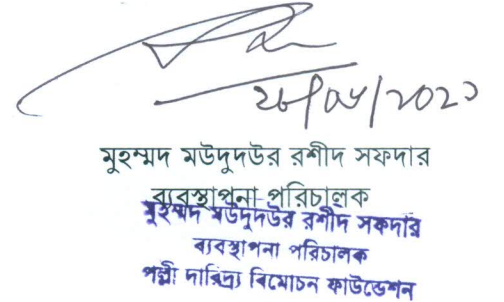 ২৮/০৬/২০২১
মুহম্মদ মউদুদউর রশীদ সফদার
ব্যবস্থাপনা পরিচালক
মুহম্মদ মউদুদউর রশীদ সফদার
ব্যবস্থাপনা পরিচালক
পল্লী দারিদ্র্য বিমোচন ফাউন্ডেশন